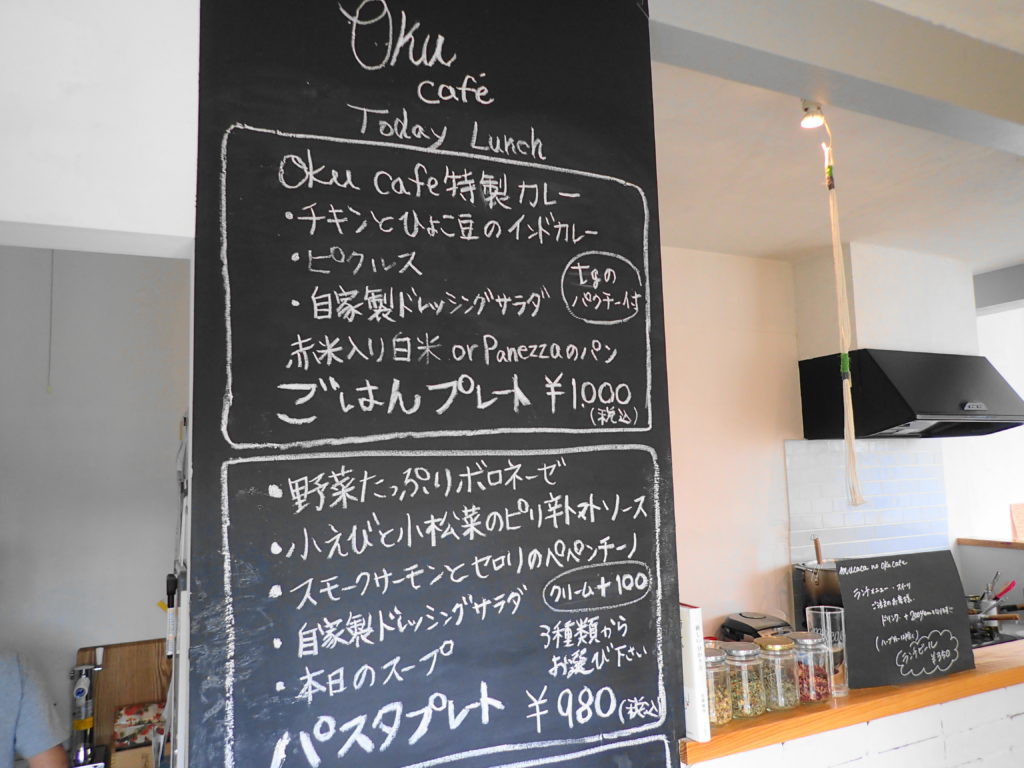 Oku
café
Today Lunch
Oku cafe特製カレー
・チキンとひよこ豆のインドカレー
・ピクルス
・自家製ドレッシングサラダ
パクチー付
赤米入り白米 or Panezzaのパン
ごはんプレート ¥1,000
(税込)
・野菜たっぷりボロネーゼ
・小えびと小松菜のピリ辛トマトソース
・スモークサーモンとセロリのペペンチーノ
クリーム+100
・自家製ドレッシングサラダ
・本日のスープ
3種類から
お選び下さい
パスタプレート ¥980(税込)
mucaca no oku cafe
ランチメニュー・スイーツ
ご注文のお客様
ランチビール
¥350